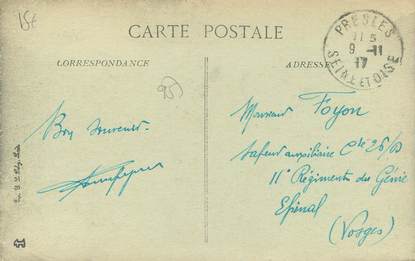 15t
CARTE POSTALE
CORRESPONDANCE
ADRESSE
PRESLES
11 5
9 -11
17
SEINE ET OISE
Bon souvenir.
Monsieur Foyon
Sapeur auxiliaire Cie 26/
11e Régiment du Génie
Epinal
(Vosges)